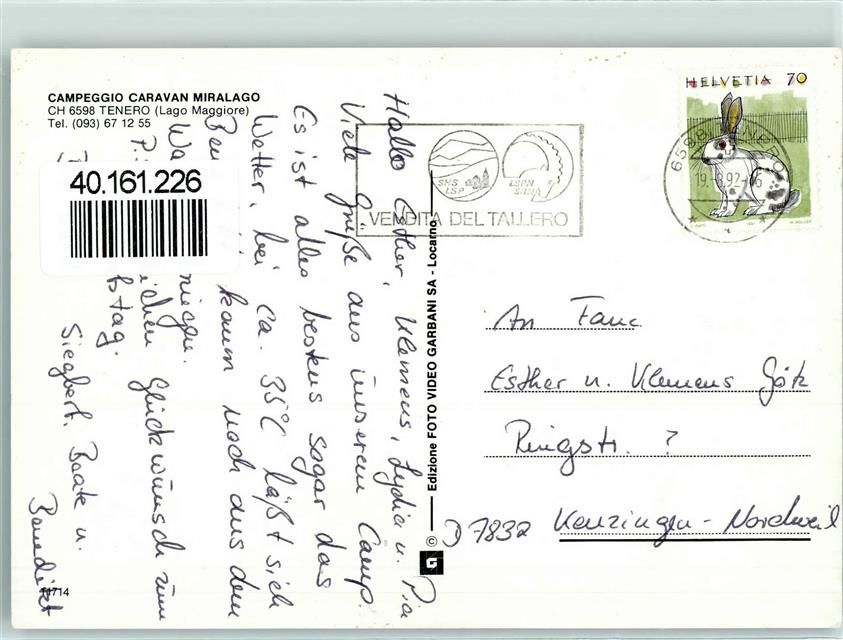 CAMPEGGIO CARAVAN MIRALAGO
CH 6598 TENERO (Lago Maggiore)
Tel. (093) 67 12 55
40.161.226
Hallo Esther, Klemens, Lydia u. Pia
Viele Grüße aus unserem Camp.
Es ist alles bestens sogar das
Wetter, bei ca. 35°C läßt sich
Ben kaum noch aus dem
Wa
Glückwünsch zum
stag.
Siegbert, Beate u.
Benedikt
11714
SHS
LSP
LSPN
VENDITA DEL TALLERO
HELVETIA 70
6598 TENERO
Edizione FOTO VIDEO GARBANI SA - Locarno
©
G
An Fam.
Esther u. Klemens Götz
Ringstr. ?
D 7832 Kenzingen - Nordweil